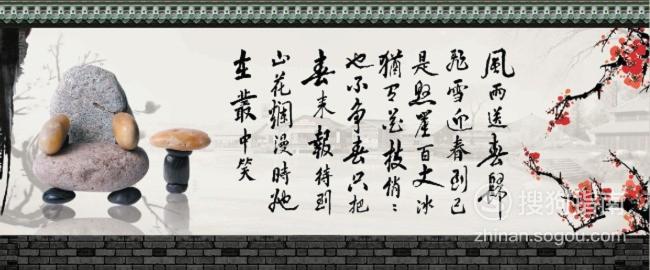 風雨送春歸
飛雪迎春到已
是懸崖百丈冰
猶有花枝俏〻
也不争春只把
春来報待到
山花爛漫時她
在叢中笑
搜狗指南
zhinan.sogou.com